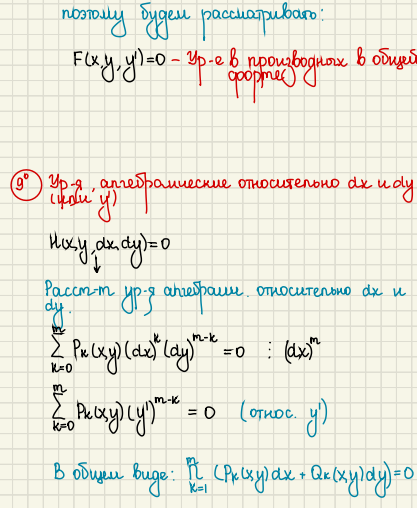 поэтому будем рассматривать:
F(x,y,y')=0 – Ур-е в производных в общей
форме
9° Ур-я, алгебраические относительно dx и dy
(или y')
H(x,y,dx,dy)=0
↓
Рассм-м ур-я алгебраич. относительно dx и
dy.
∑_{k=0}^{m} P_k(x,y)(dx)^k(dy)^{m-k} = 0 ⋮ (dx)^m
∑_{k=0}^{m} P_k(x,y)(y')^{m-k} = 0 (относ. y')
В общем виде: ∏_{k=1}^{m} (P_k(x,y)dx + Q_k(x,y)dy)=0